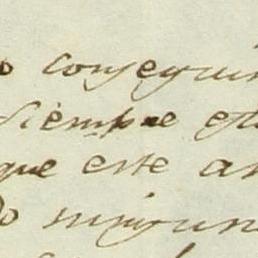 conseguir
siempre est
que este an
do ningun